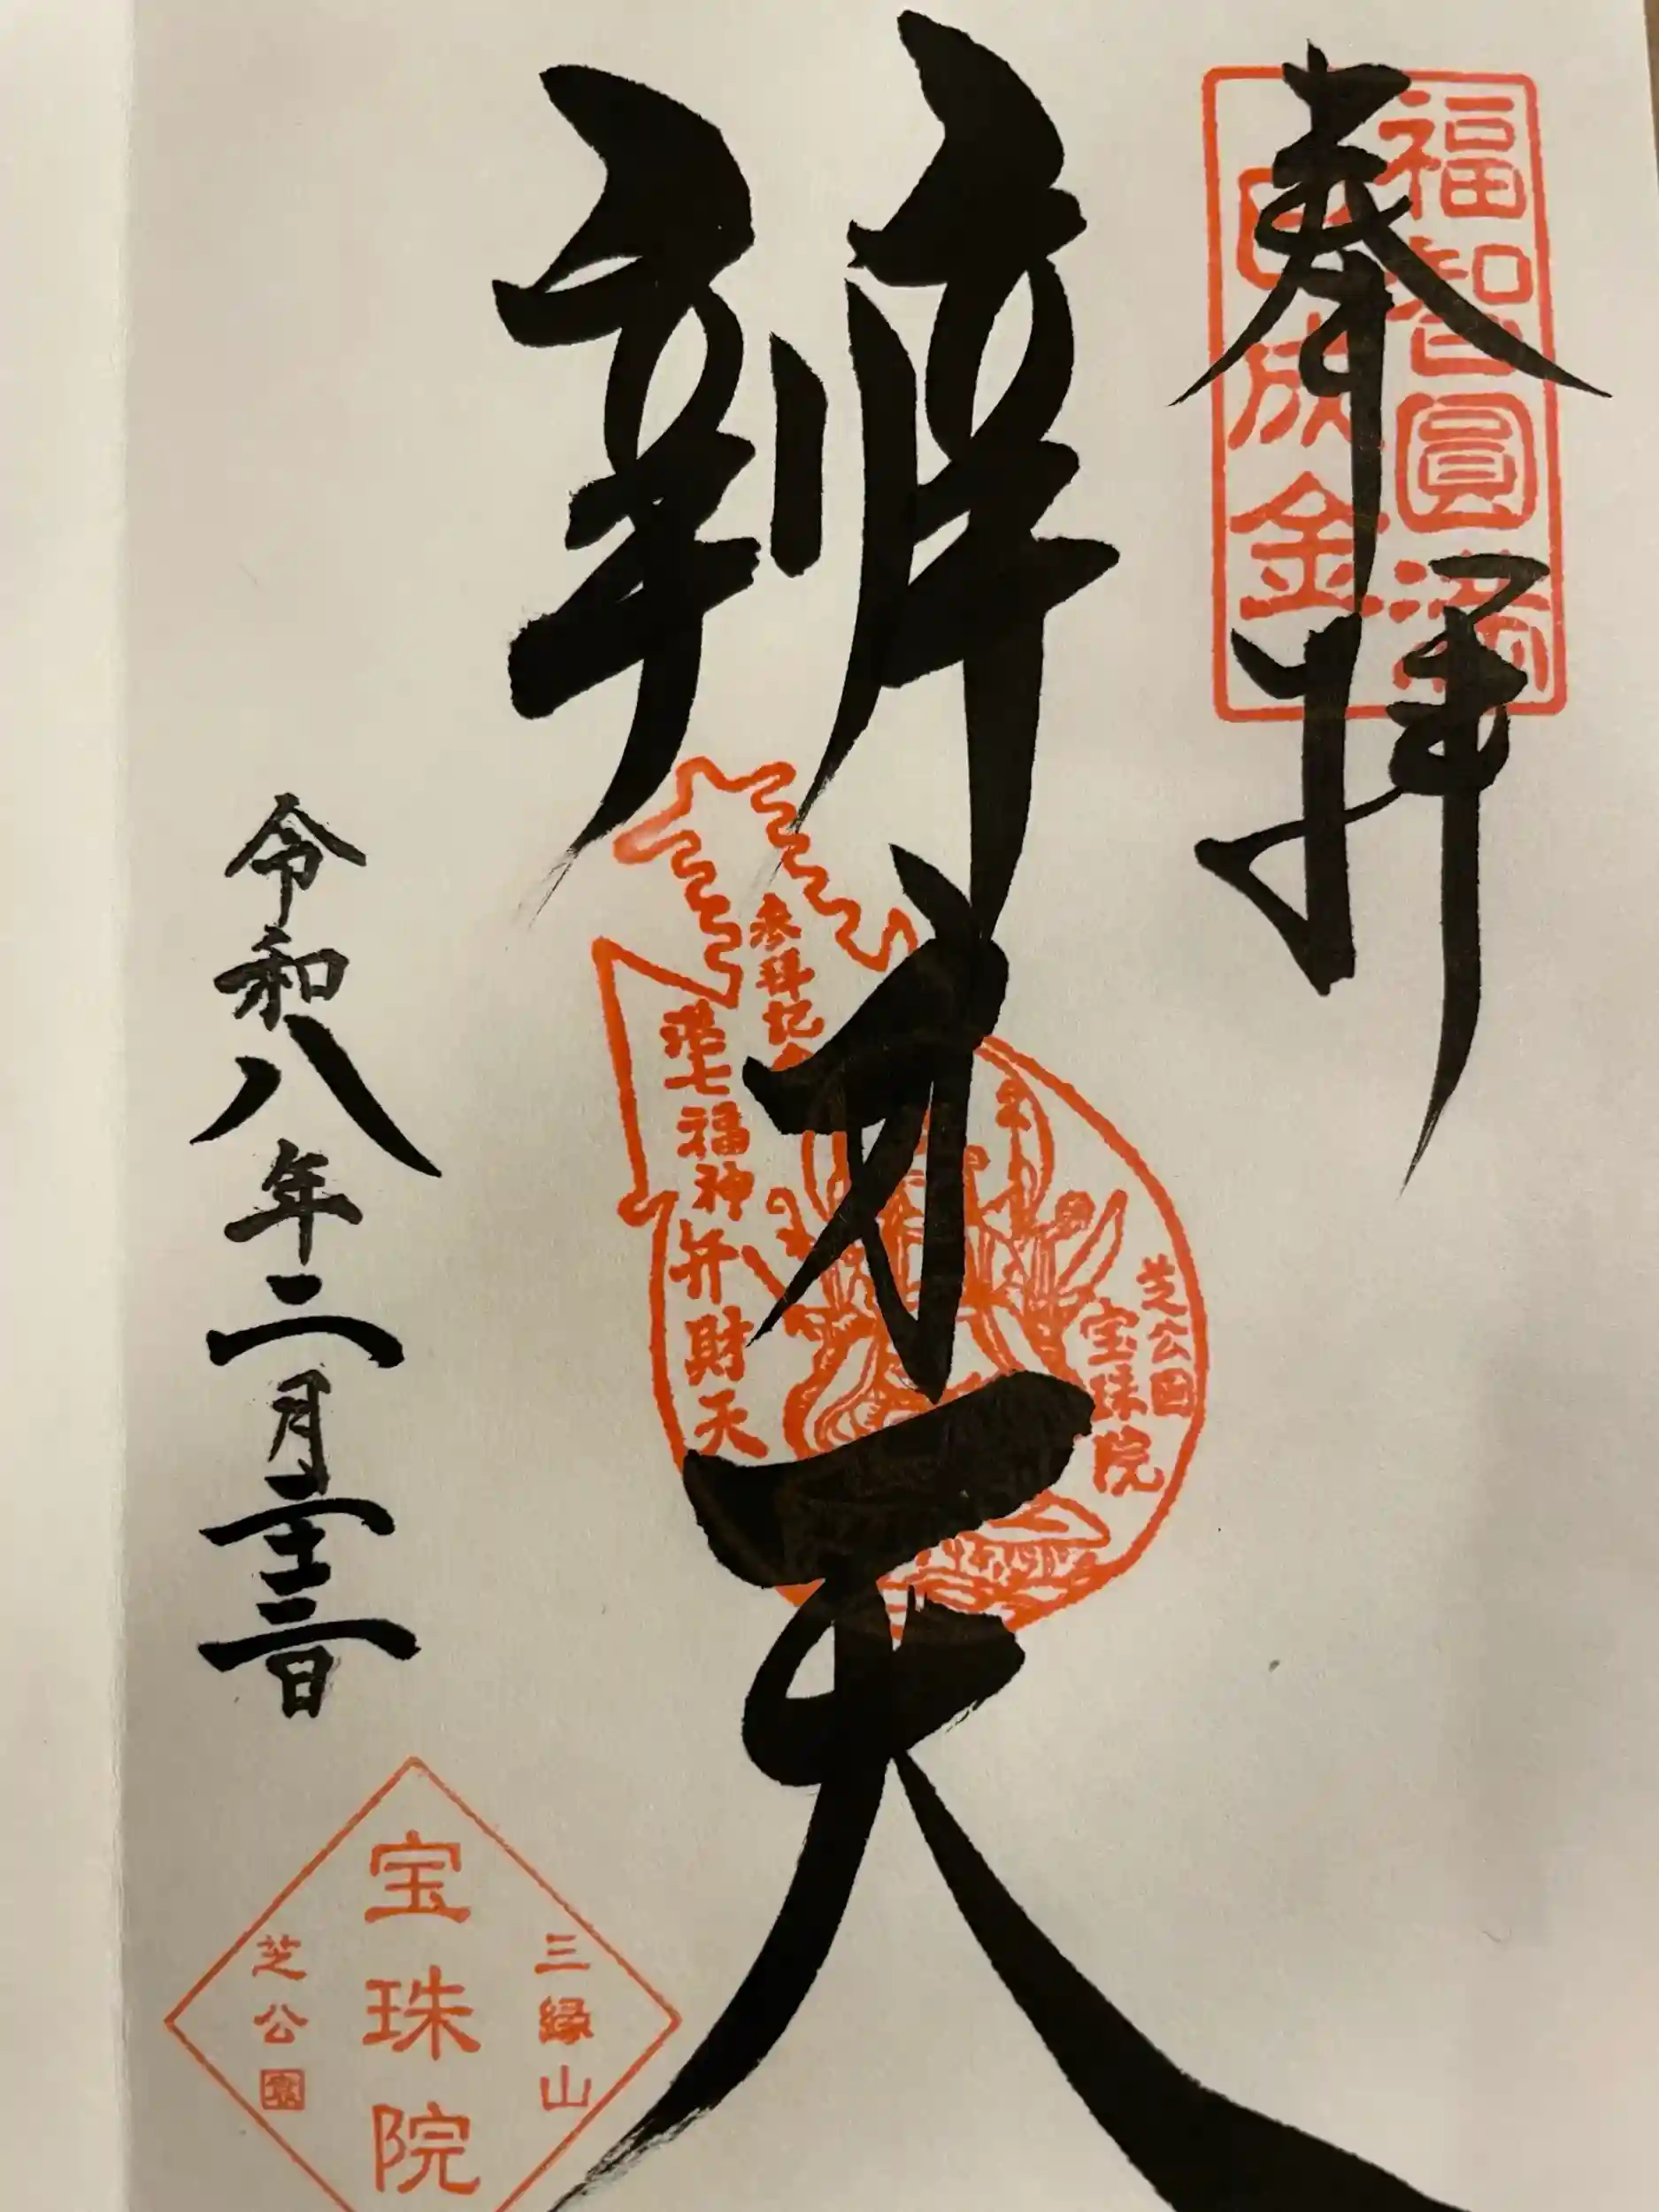 奉拝
福智圓満
成金
辨才天
参拝記念
港七福神
弁財天
芝公園
宝珠院
令和八年二月二十三日
三縁山
宝珠院
芝公園